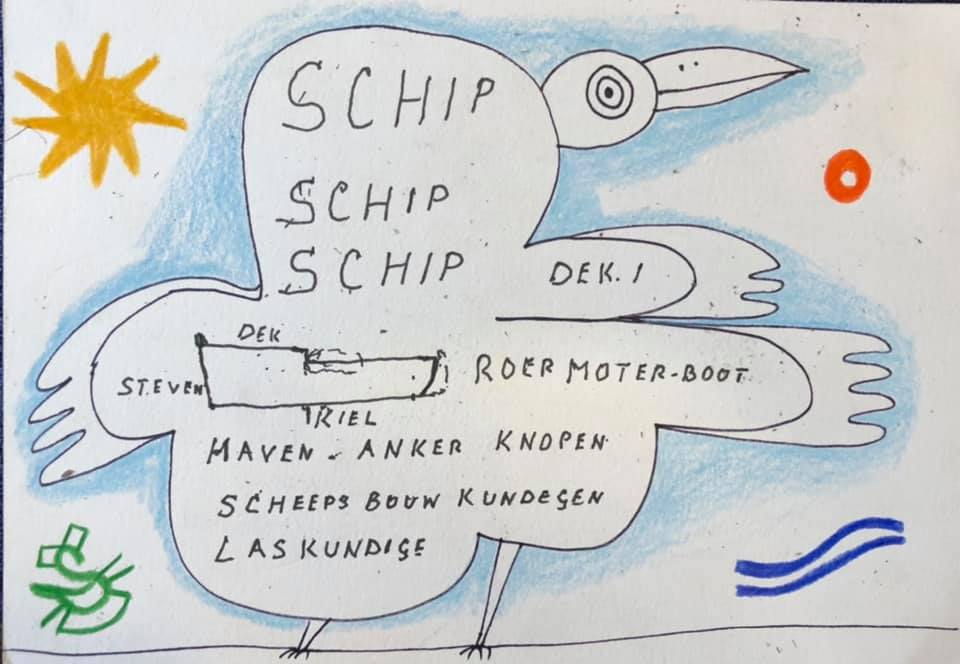 SCHIP
SCHIP
SCHIP
DEK. 1
DEK
STEVEN
ROER MOTER-BOOT
KIEL
HAVEN - ANKER KNOPEN
SCHEEPS BOUW KUNDEGEN
LASKUNDIGE